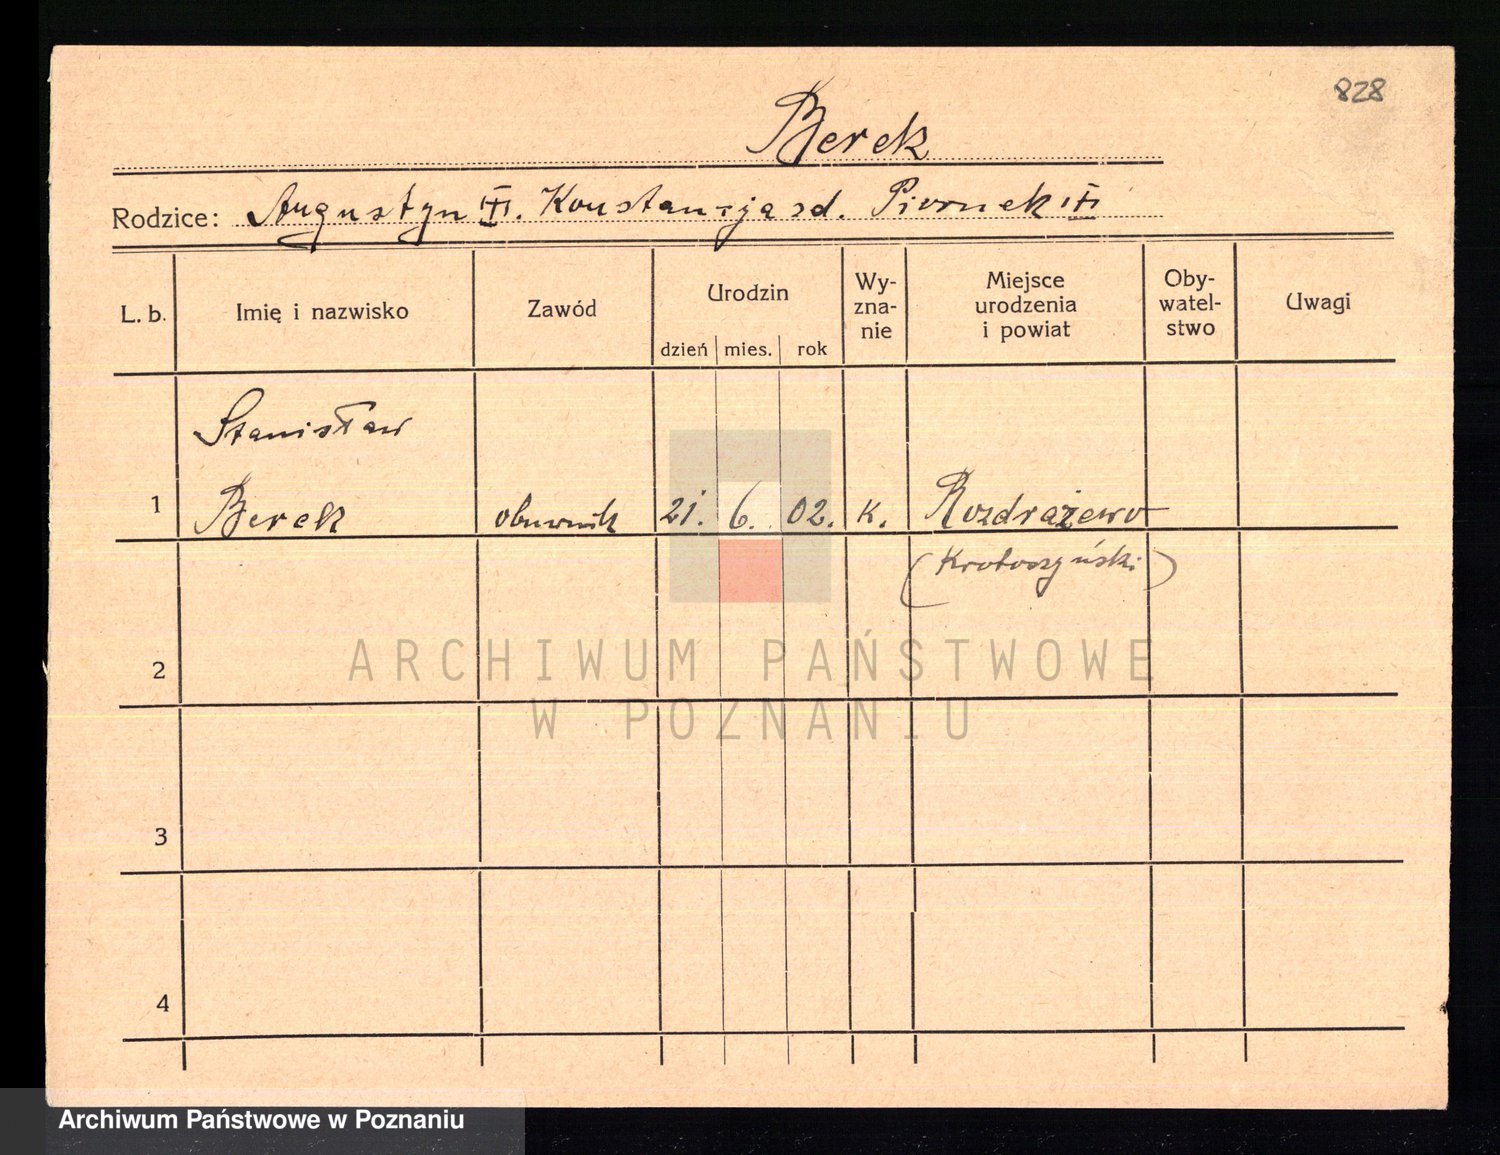 828
Berek
Rodzice: Augustyn III. Konstancja zd. Piornek
L. b.
Imię i nazwisko
Zawód
Urodzin
dzień mies. rok
Wy-
zna-
nie
Miejsce
urodzenia
i powiat
Oby-
watel-
stwo
Uwagi
Stanisław
1 Berek obuwnik 21. 6. 02. K. Rozdrażewo
(Krotoszyński)
2
ARCHIWUM PAŃSTWOWE
W POZNANIU
3
4
Archiwum Państwowe w Poznaniu